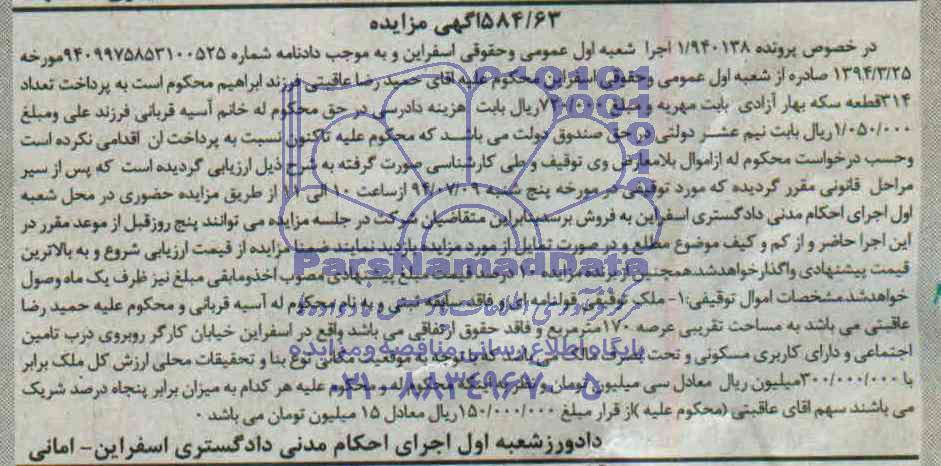 ۵۸۴/۶۳آگهی مزایده
در خصوص پرونده ۱/۹۴۰۱۳۸ اجرا شعبه اول عمومی وحقوقی اسفراین و به موجب دادنامه شماره ۹۴۰۹۹۷۵۸۵۳۱۰۰۵۲۵مورخه
۱۳۹۴/۳/۲۵ صادره از شعبه اول عمومی وحقوقی اسفراین محکوم علیه اقای حمید رضا عاقبتی فرزند ابراهیم محکوم است به پرداخت تعداد
۳۱۴قطعه سکه بهار آزادی بابت مهریه و مبلغ ۷۲۰/۰۰۰ریال بابت هزینه دادرسی در حق محکوم له خانم آسیه قربانی فرزند علی ومبلغ
۱/۰۵۰/۰۰۰ریال بابت نیم عشر دولتی در حق صندوق دولت می باشد که محکوم علیه تاکنون نسبت به پرداخت ان اقدامی نکرده است
وحسب درخواست محکوم له ازاموال بلامعارض وی توقیف و طی کارشناسی صورت گرفته به شرح ذیل ارزیابی گردیده است که پس از سیر
مراحل قانونی مقرر گردیده که مورد توقیفی در مورخه پنج شنبه ۹۴/۰۷/۰۹ ازساعت ۱۰ الی ۱۱ از طریق مزایده حضوری در محل شعبه
اول اجرای احکام مدنی دادگستری اسفراین به فروش برسدبنابراین متقاضیان شرکت در جلسه مزایده می توانند پنج روزقبل از موعد مقرر در
این اجرا حاضر و از کم و کیف موضوع مطلع و در صورت تمایل از مورد مزایده بازدید نمایند ضمنا مزایده از قیمت ارزیابی شروع و به بالاترین
قیمت پیشنهادی واگذارخواهدشد.همچنین از برنده مزایده ۱۰درصد قیمت مبلغ پیشنهادی مصوب اخذومابقی مبلغ نیز ظرف یک ماه وصول
خواهدشد.مشخصات اموال توقیفی:۱- ملک توقیفی قولنامه ای و فاقد سابقه ثبتی و به نام محکوم له آسیه قربانی و محکوم علیه حمید رضا
عاقبتی می باشد به مساحت تقریبی عرصه ۱۷۰مترمربع و فاقد حقوق ارتفاقی می باشد واقع در اسفراین خیابان کارگر روبروی درب تامین
اجتماعی و دارای کاربری مسکونی و تحت تصرف مالک می باشد که باتوجه به موقعیت مکانی نوع بنا و تحقیقات محلی ارزش کل ملک برابر
با ۳۰۰/۰۰۰/۰۰۰میلیون ریال معادل سی میلیون تومان و نظر به اینکه محکوم له و محکوم علیه هر کدام به میزان برابر پنجاه درصد شریک
می باشند سهم اقای عاقبتی (محکوم علیه )از قرار مبلغ ۱۵۰/۰۰۰/۰۰۰ریال معادل ۱۵ میلیون تومان می باشد .
دادورزشعبه اول اجرای احکام مدنی دادگستری اسفراین- امانی
ParsNamadData
پایگاه اطلاع رسانی مناقصه و مزایده
۰۲۱-۸۸۳۴۹۶۷۰-۵